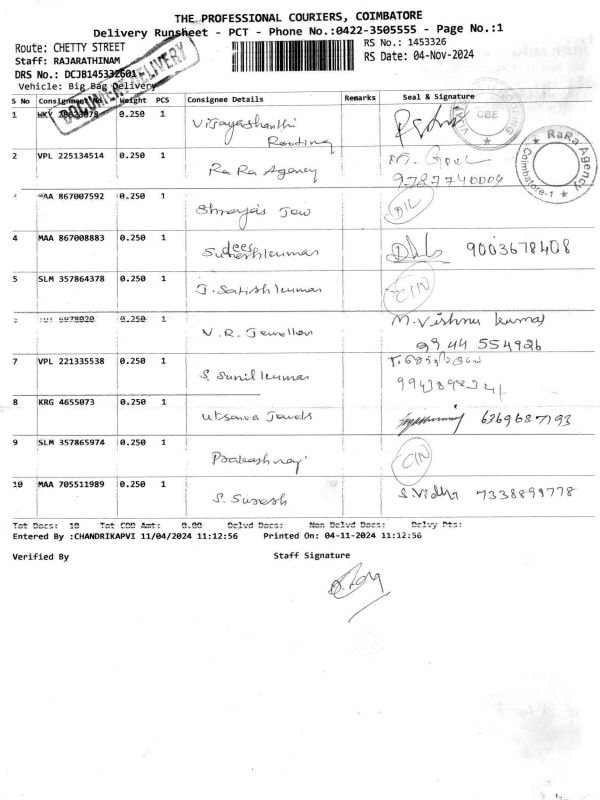 THE PROFESSIONAL COURIERS, COIMBATORE
Delivery Runsheet - PCT - Phone No.:0422-3505555 - Page No.:1
Route: CHETTY STREET
RS No.: 1453326
Staff: RAJARATHINAM
RS Date: 04-Nov-2024
DRS No.: DCJB145332601
Vehicle: Big Bag Delivery
DOCUMENT DELIVERY
S No Consignment No Weight PCS Consignee Details Remarks Seal & Signature
1 0.250 1 Vijayashanthi
Routing
CBE
2 VPL 225134514 0.250 1 Ra Ra Agency
9787740004
RaRa Agency
Coimbatore-1
MAA 867007592 0.250 1 Shreyas Jew
D/L
4 MAA 867008883 0.250 1 9003678408
5 SLM 357864378 0.250 1 J. Satishkumar
C/N
0.250 1 V.R. Jewellers M. Vishnu kumar
9944 554926
7 VPL 221335538 0.250 1 S. Sunilkumar
8 KRG 4655073 0.250 1 Utsava Jewels 6369687193
9 SLM 357865974 0.250 1 Prakashraj C/N
10 MAA 705511989 0.250 1 S. Suresh S. Vidhy 7338899778
Tot Docs: 10 Tot COD Amt: 0.00 Delvd Docs: Non Delvd Docs: Delvy Pts:
Entered By :CHANDRIKAPVI 11/04/2024 11:12:56 Printed On: 04-11-2024 11:12:56
Verified By Staff Signature